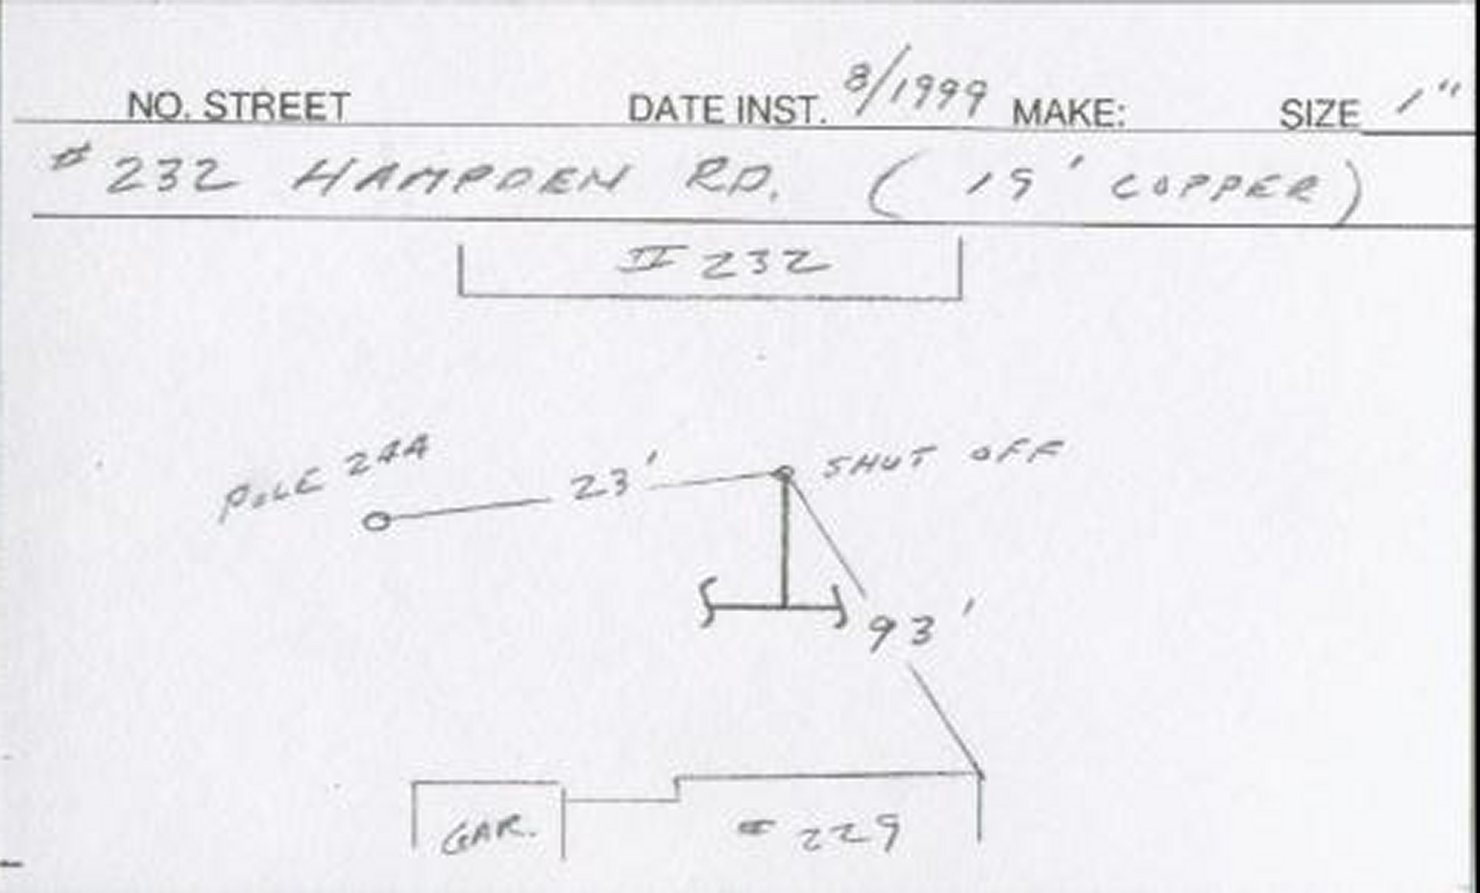 NO. STREET DATE INST. 8/1999 MAKE: SIZE 1"
# 232 HAMPDEN RD. ( 19' COPPER)
# 232
POLE 24A
23'
SHUT OFF
93'
GAR.
# 229